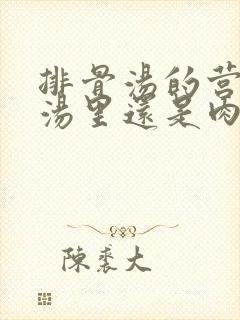 排骨湯的营
湯里還是肉
陳裘大